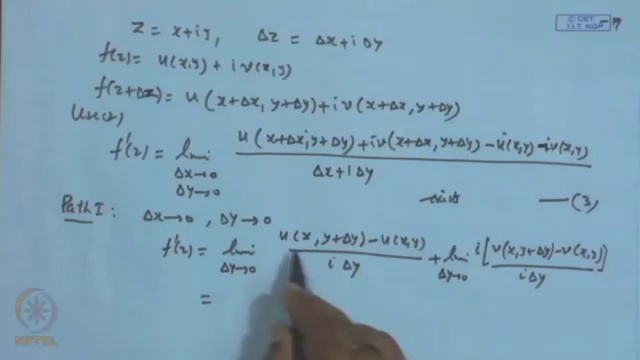 © CET
I.I.T. KGP
7
Z = x+iy, Δz = Δx+iΔy
f(z)= u(x,y) + i v(x,y)
f(z+Δz)= u(x+Δx, y+Δy)+i v(x+Δx, y+Δy)
Use(2)
f'(z) = lim Δx→0 Δy→0 u(x+Δx, y+Δy)+iv(x+Δx, y+Δy) - u(x,y) - iv(x,y) / Δx+iΔy
exists — (3)
Path I: Δx→0, Δy→0
f'(z) = lim Δy→0 u(x, y+Δy)-u(x,y) / iΔy + lim Δy→0 i[v(x,y+Δy)-v(x,y)] / iΔy
=
NPTEL